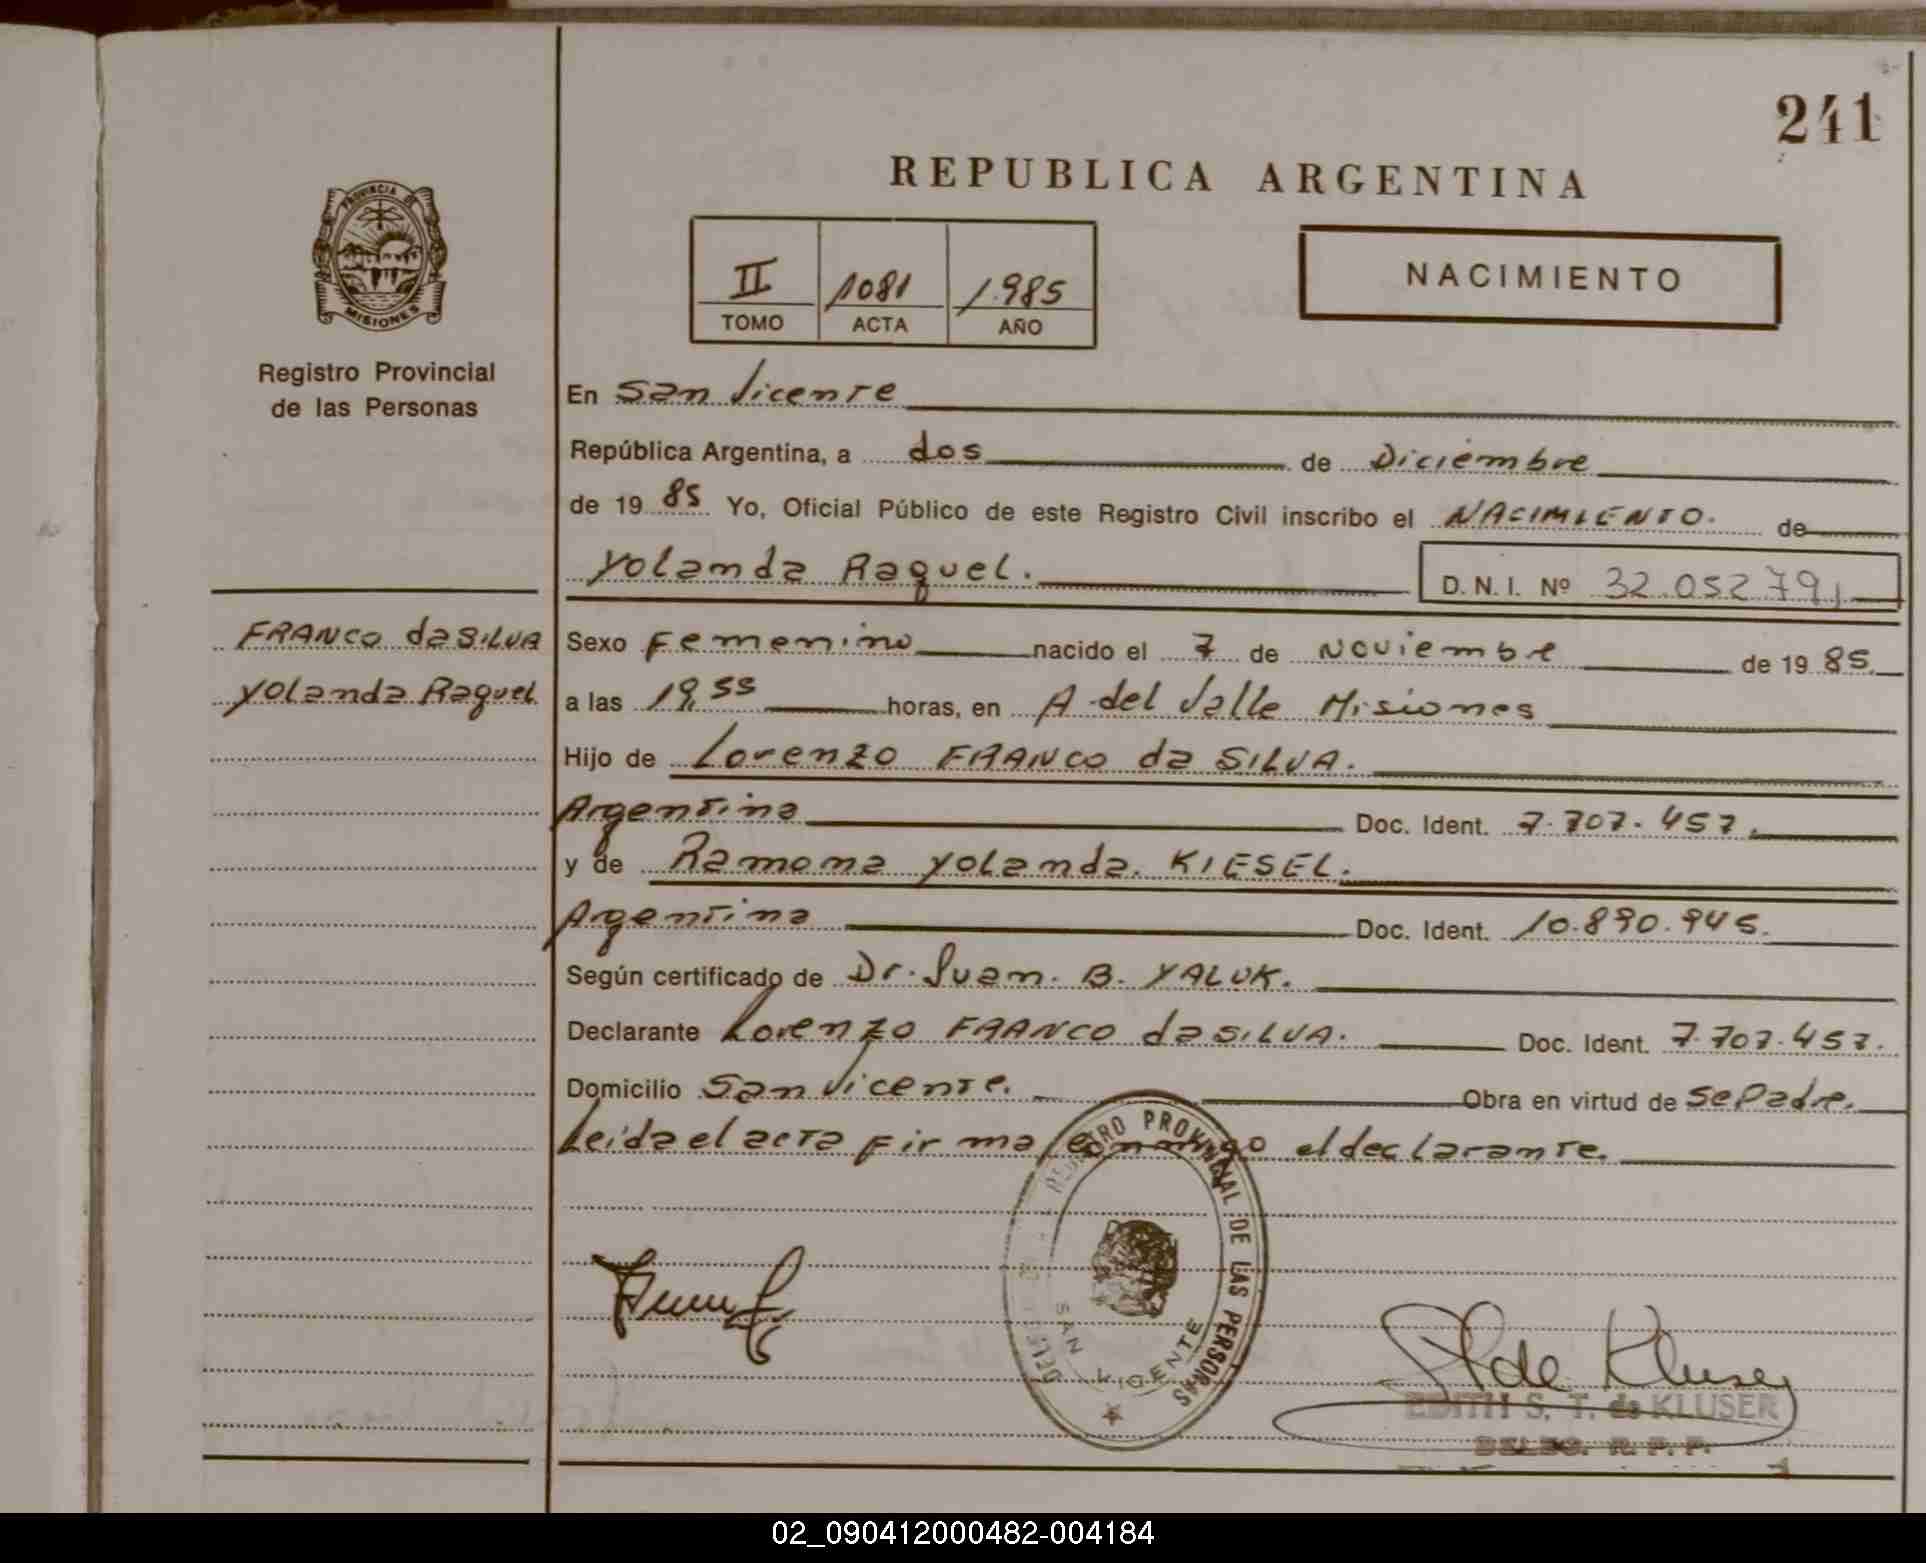 241
REPUBLICA ARGENTINA
PROVINCIA DE
MISIONES
II 1081 1.985
TOMO ACTA AÑO
NACIMIENTO
Registro Provincial
de las Personas
En San Vicente
República Argentina, a dos de Diciembre
de 19 85 Yo, Oficial Público de este Registro Civil inscribo el NACIMIENTO. de
Yolanda Raquel. D. N. I. Nº 32.052.791
FRANCO da SILVA
Yolanda Raquel
Sexo Femenino nacido el 7 de Noviembre de 19 85.
a las 19,55 horas, en A del Valle Misiones
Hijo de Lorenzo FRANCO da SILVA.
Argentina Doc. Ident. 7.707.457.
y de Ramona Yolanda. KIESEL.
Argentina Doc. Ident. 10.890.945.
Según certificado de Dr. Juan. B. YALUK.
Declarante Lorenzo FRANCO da SILVA. Doc. Ident. 7.707.457.
Domicilio San Vicente. Obra en virtud de Se Padre.
Leida el acta firma conmigo el declarante.
REGISTRO PROVINCIAL DE LAS PERSONAS
SAN VICENTE
de Kluser
EDITH S. T. de KLUSER
DELEG. R. P. P.
02_090412000482-004184